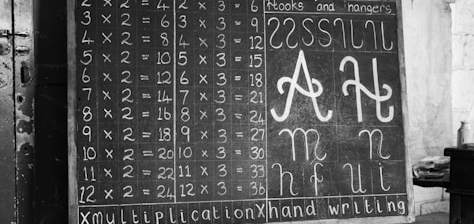 2 × 2 = 4
3 × 2 = 6
4 × 2 = 8
5 × 2 = 10
6 × 2 = 12
7 × 2 = 14
8 × 2 = 16
9 × 2 = 18
10 × 2 = 20
11 × 2 = 22
12 × 2 = 24
2 × 3 = 6
3 × 3 = 9
4 × 3 = 12
5 × 3 = 15
6 × 3 = 18
7 × 3 = 21
8 × 3 = 24
9 × 3 = 27
10 × 3 = 30
11 × 3 = 33
12 × 3 = 36
Hooks and hangers
A H
m n
h f u i
×multiplication× hand writing